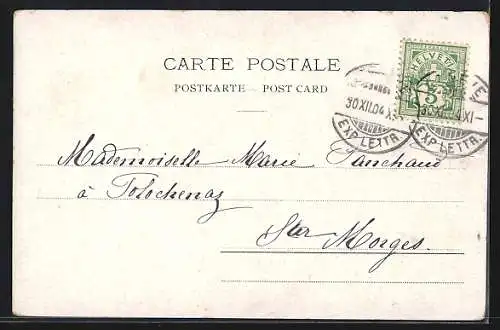 CARTE POSTALE
POSTKARTE - POST CARD
HELVETIA
5
30.XII.04 XI-
EXP. LETTR.
30.XII.04 XI-
EXP. LETTR.
Mademoiselle Marie Tanchaud
à Tolochenaz
Sta Morges.